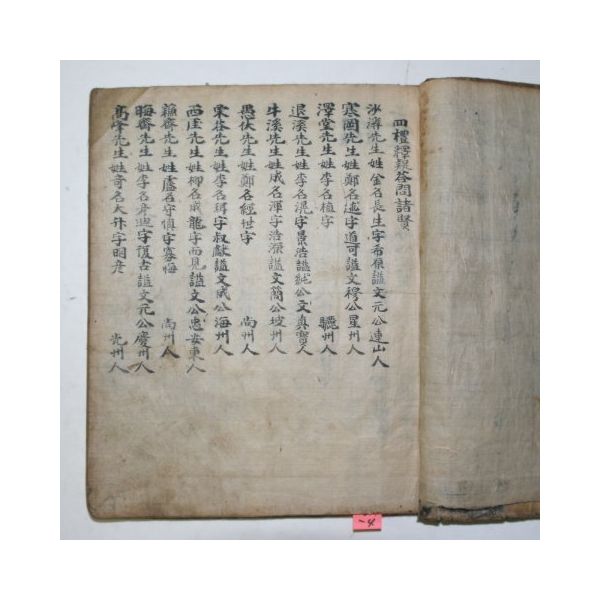 四禮釋疑答問諸賢
沙溪先生姓金名長生字希原諡文元公連山人
寒岡先生姓鄭名逑字道可諡文穆公星州人
澤堂先生姓李名植字 驪州人
退溪先生姓李名滉字景浩諡純公文真寶人
牛溪先生姓成名渾字浩源諡文簡公坡州人
愚伏先生姓鄭名經世字 尚州人
栗谷先生姓李名珥字叔獻諡文成公海州人
西厓先生姓柳名成龍字而見諡文公忠安東人
蘇齋先生姓盧名守愼字寡悔 尚州人
晦齋先生姓李名彦迪字復古諡文元公慶州人
高峯先生姓奇名大升字明彦 光州人
-4